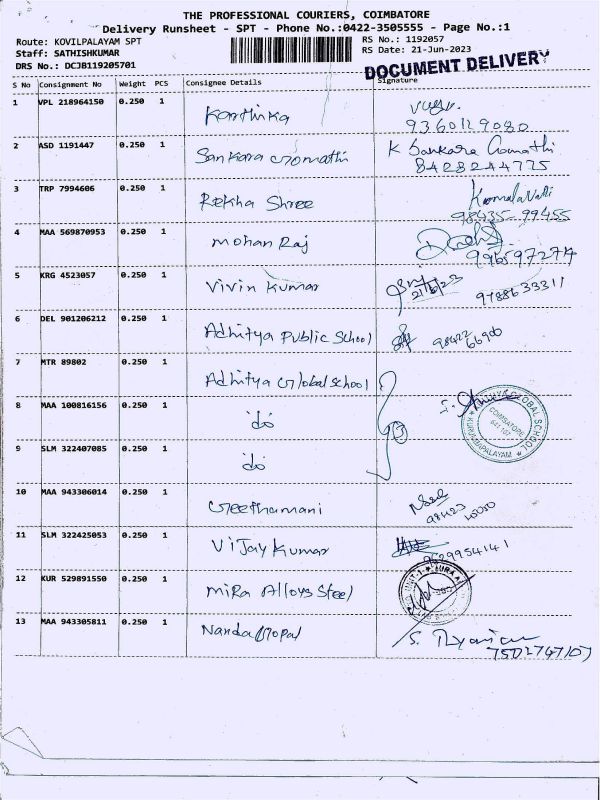 THE PROFESSIONAL COURIERS, COIMBATORE
Delivery Runsheet - SPT - Phone No.:0422-3505555 - Page No.:1
Route: KOVILPALAYAM SPT RS No.: 1192057
Staff: SATHISHKUMAR RS Date: 21-Jun-2023
DRS No.: DCJB119205701 DOCUMENT DELIVERY
S No Consignment No Weight PCS Consignee Details Signature
1 VPL 218964150 0.250 1 Karthika
9360129080
2 ASD 1191447 0.250 1 Sankara Gomathi K Sankara Gomathi
8428244775
3 TRP 7994606 0.250 1 Rekha Shree Komalavalli
98435-99455
4 MAA 569870953 0.250 1 Mohan Raj
9965972774
5 KRG 4523057 0.250 1 Vivin Kumar 21/6/23 9788633311
6 DEL 901206212 0.250 1 Adhitya Public School 98422 66900
7 MTR 89802 0.250 1 Adhitya Global School
8 MAA 100816156 0.250 1 do GLOBAL SCHOOL COIMBATORE 641 107 KURUMBAPALAYAM
9 SLM 322407085 0.250 1 do
10 MAA 943306014 0.250 1 Geethamani 98423
11 SLM 322425053 0.250 1 Vijay Kumar 9629954141
12 KUR 529891550 0.250 1 Mira Alloys Steel
13 MAA 943305811 0.250 1 Nanda Gopal S.
7502747107